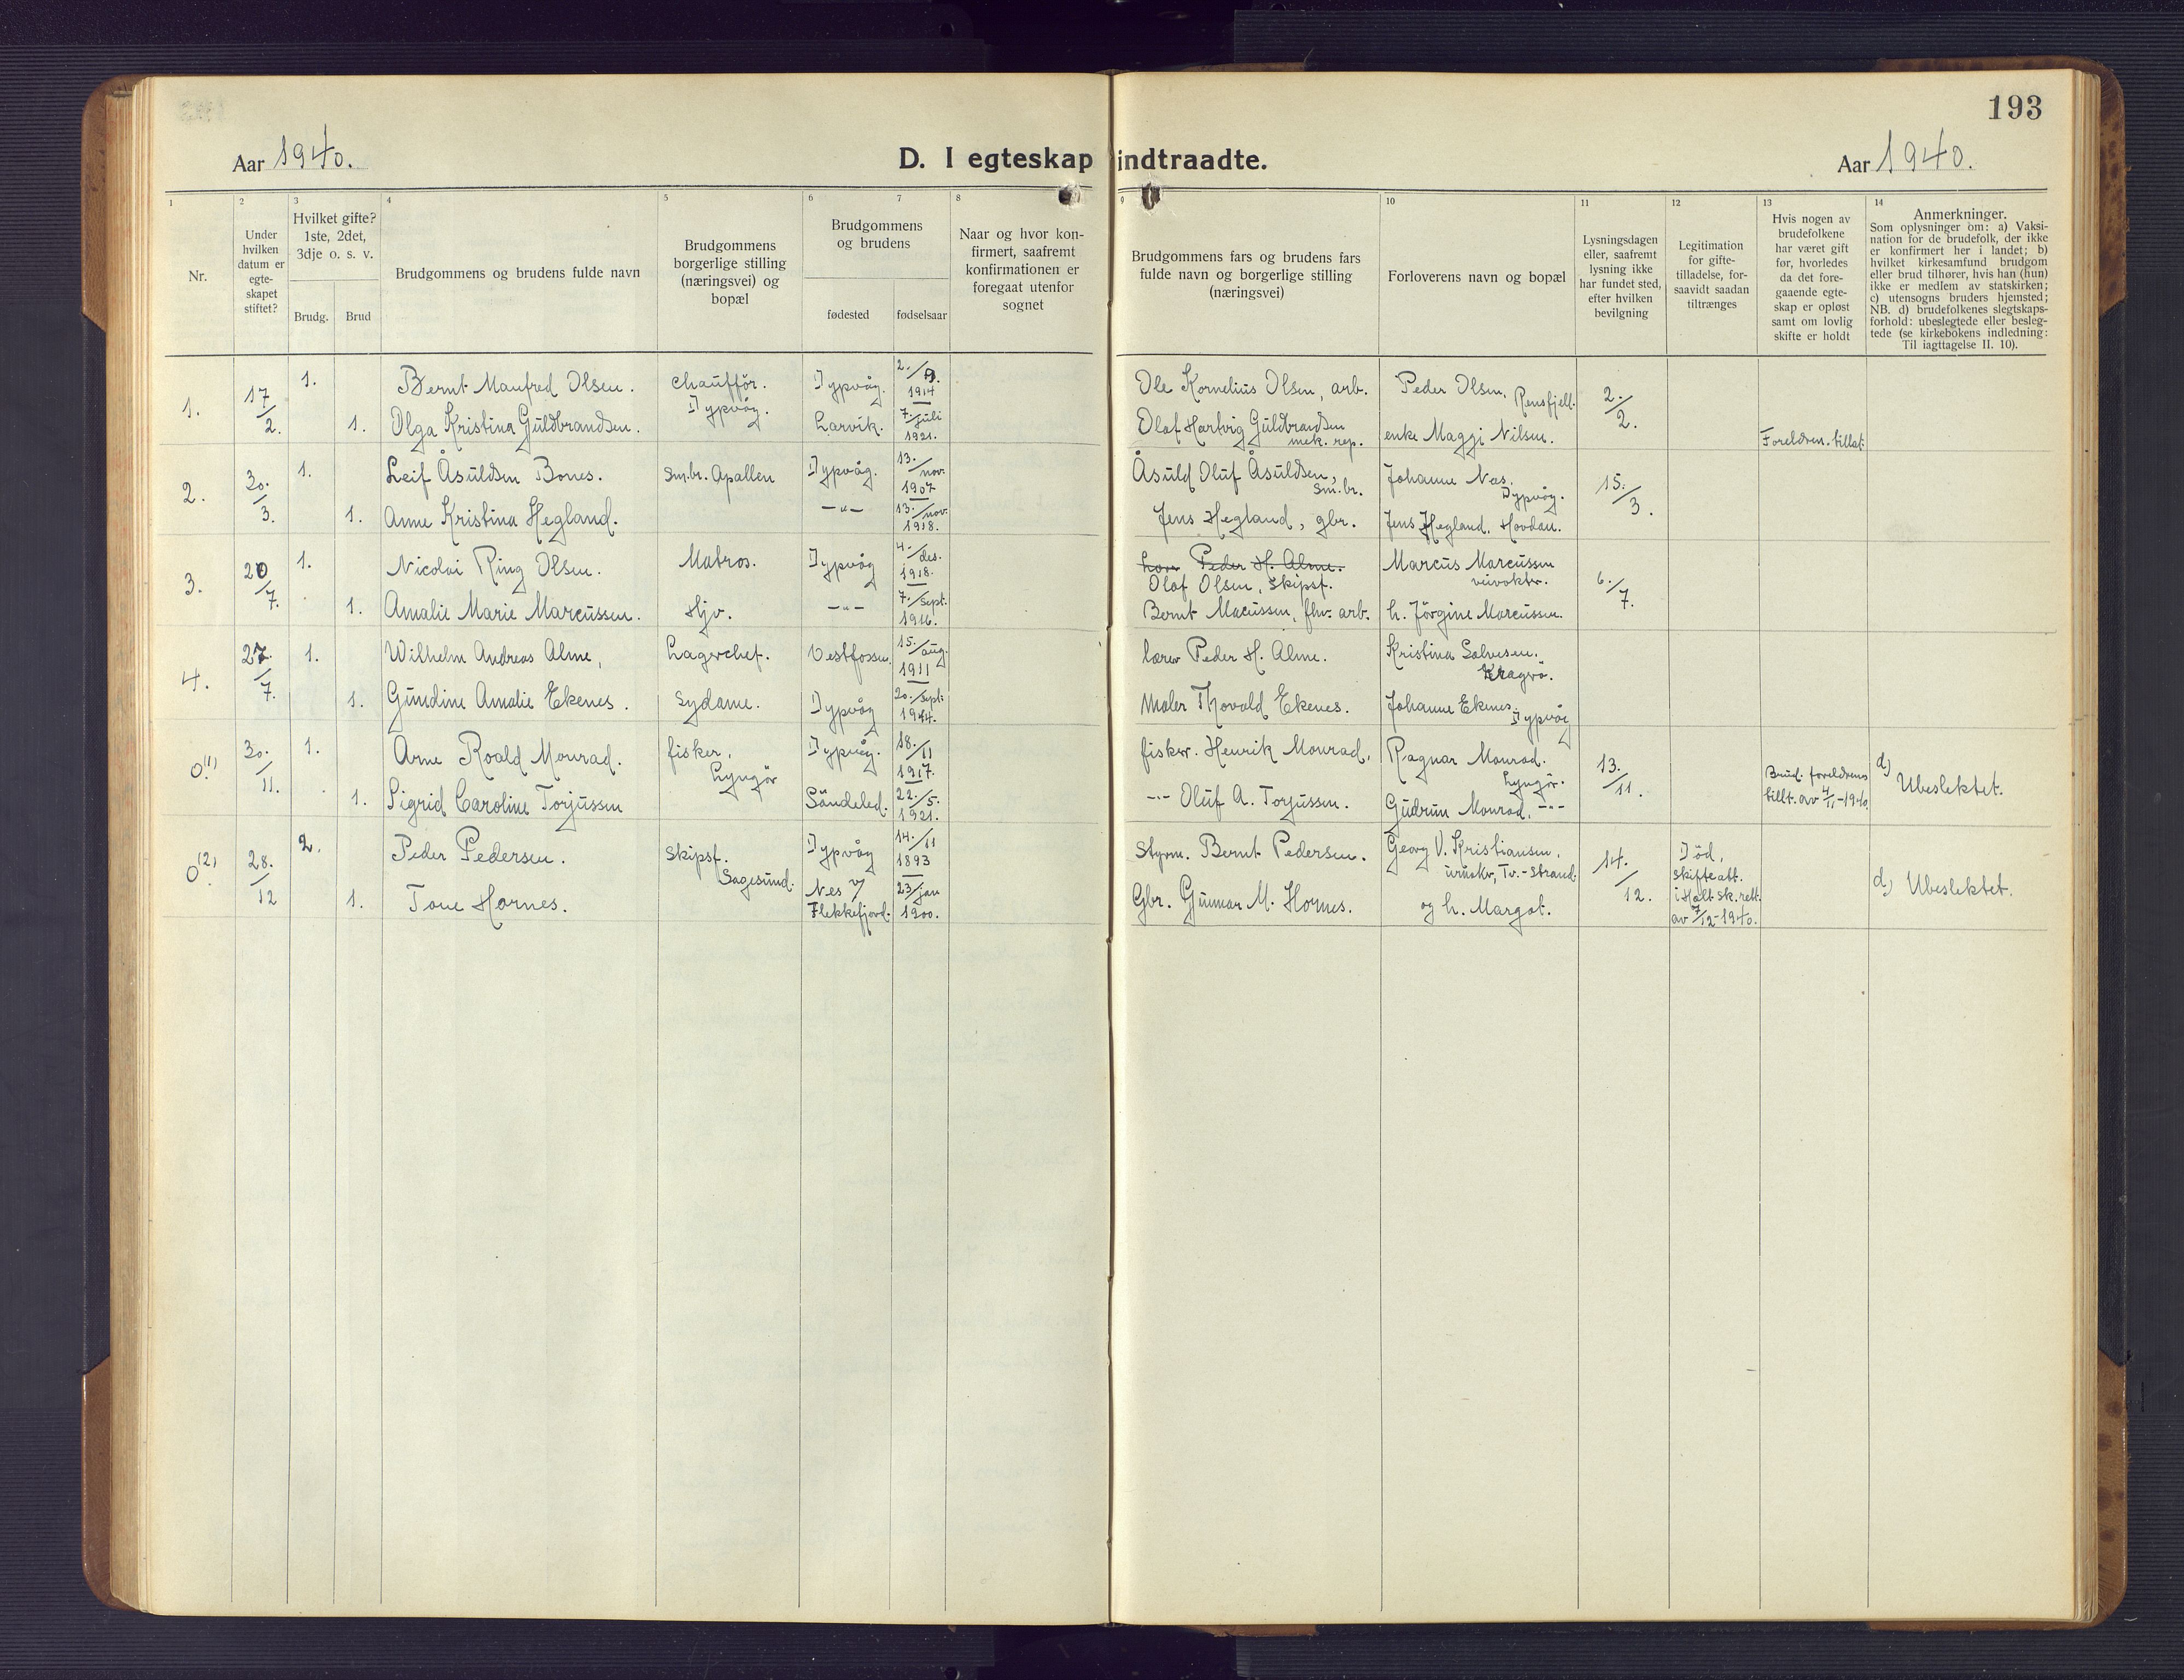 193
Aar 1940.
D. I egteskap indtraadte.
Aar 1940.
1
2
3
4
5
6
7
8
9
10
11
12
13
14
Nr.
Under
hvilken
datum er
egte-
skapet
stiftet?
Hvilket gifte?
1ste, 2det,
3dje o. s. v.
Brudg.
Brud
Brudgommens og brudens fulde navn
Brudgommens
borgerlige stilling
(næringsvei) og
bopæl
Brudgommens
og brudens
fødested
fødselsaar
Naar og hvor kon-
firmert, saafremt
konfirmationen er
foregaat utenfor
sognet
Brudgommens fars og brudens fars
fulde navn og borgerlige stilling
(næringsvei)
Forloverens navn og bopæl
Lysningsdagen
eller, saafremt
lysning ikke
har fundet sted,
efter hvilken
bevilgning
Legitimation
for gifte-
tilladelse, for-
saavidt saadan
tiltrænges
Hvis nogen av
brudefolkene
har været gift
før, hvorledes
da det fore-
gaaende egte-
skap er opløst
samt om lovlig
skifte er holdt
Anmerkninger.
Som oplysninger om: a) Vaksi-
nation for de brudefolk, der ikke
er konfirmert her i landet; b)
hvilket kirkesamfund brudgom
eller brud tilhører, hvis han (hun)
ikke er medlem av statskirken;
c) utensogns bruders hjemsted;
NB. d) brudefolkenes slegtskaps-
forhold: ubeslegtede eller besleg-
tede (se kirkebokens indledning:
Til iagttagelse II. 10).
1.
17/2.
1.
Bernt Manfred Olsen.
chauffør.
Dypvåg.
Dypvåg.
2./9.
1914
Ole Kornelius Olsen, arb.
Peder Olsen, Rensfjell.
2./2.
1.
Olga Kristina Guldbrandsen.
Larvik.
7./juli
1921.
Olaf Hartvig Guldbrandsen
mek. rep.
enke Maggi Nilsen.
Foreldren. tillat.
2.
30./3.
1.
Leif Åsuldsen Bones.
Sm.br. Apallen
Dypvåg.
13./nov.
1907
Åsuld Oluf Åsuldsen,
Sm.br.
Johanne Nes.
Dypvåg.
15./3.
1.
Anne Kristina Hegland.
-"-
13./nov.
1918.
Jens Hegland, gbr.
Jens Hegland. Hovdan.
3.
20/7.
1.
Nicolai Ring Olsen.
Matros.
Dypvåg
4./des.
1918.
Peder H. Alme.
Olaf Olsen, skipsf.
Marcus Marcussen
veivokter.
6./7.
1.
Amalie Marie Marcussen.
Hjv.
-"-
7./sept.
1916.
Bernt Macussen, fhv. arb.
h. Jørgine Marcussen.
4.
27./7.
1.
Wilhelm Andreas Alme,
Lagerchef.
Vestfossen.
15./aug.
1911
lærer Peder H. Alme.
Kristina Salvesen.
Kragerø.
1.
Gundine Amalie Ekenes.
Sydame.
Dypvåg
20./sept.
1914.
Maler Thovald Ekenes.
Johanne Ekenes.
Dypvåg
0.(1)
30./11.
1.
Arne Roald Monrad.
fisker,
Lyngør
Dypvåg.
18./11
1917.
fisker. Henrik Monrad,
Ragnar Monrad.
Lyngør.
13./11.
Brud. foreldrens
tillt. av 4/11-1940.
d)
Ubeslektet.
1.
Sigrid Caroline Torjussen
Søndeled.
22./5.
1921.
-"- Oluf A. Torjussen.
Gudrun Monrad. -"-
0.(2)
28./12
2.
Peder Pedersen.
Skipsf.
Sagesund.
Dypvåg
14./11
1893
Styrm. Bernt Pedersen.
Georg V. Kristiansen,
urmaker, Tv.-strand.
14./12.
Død,
skifteatt.
i Holt sk.rett.
av 7/12-1940.
d) Ubeslektet.
1.
Tone Hornes.
Nes v/
Flekkefjord.
23/jan
1900.
Gbr. Gunnar M. Hornes.
og h. Margot.